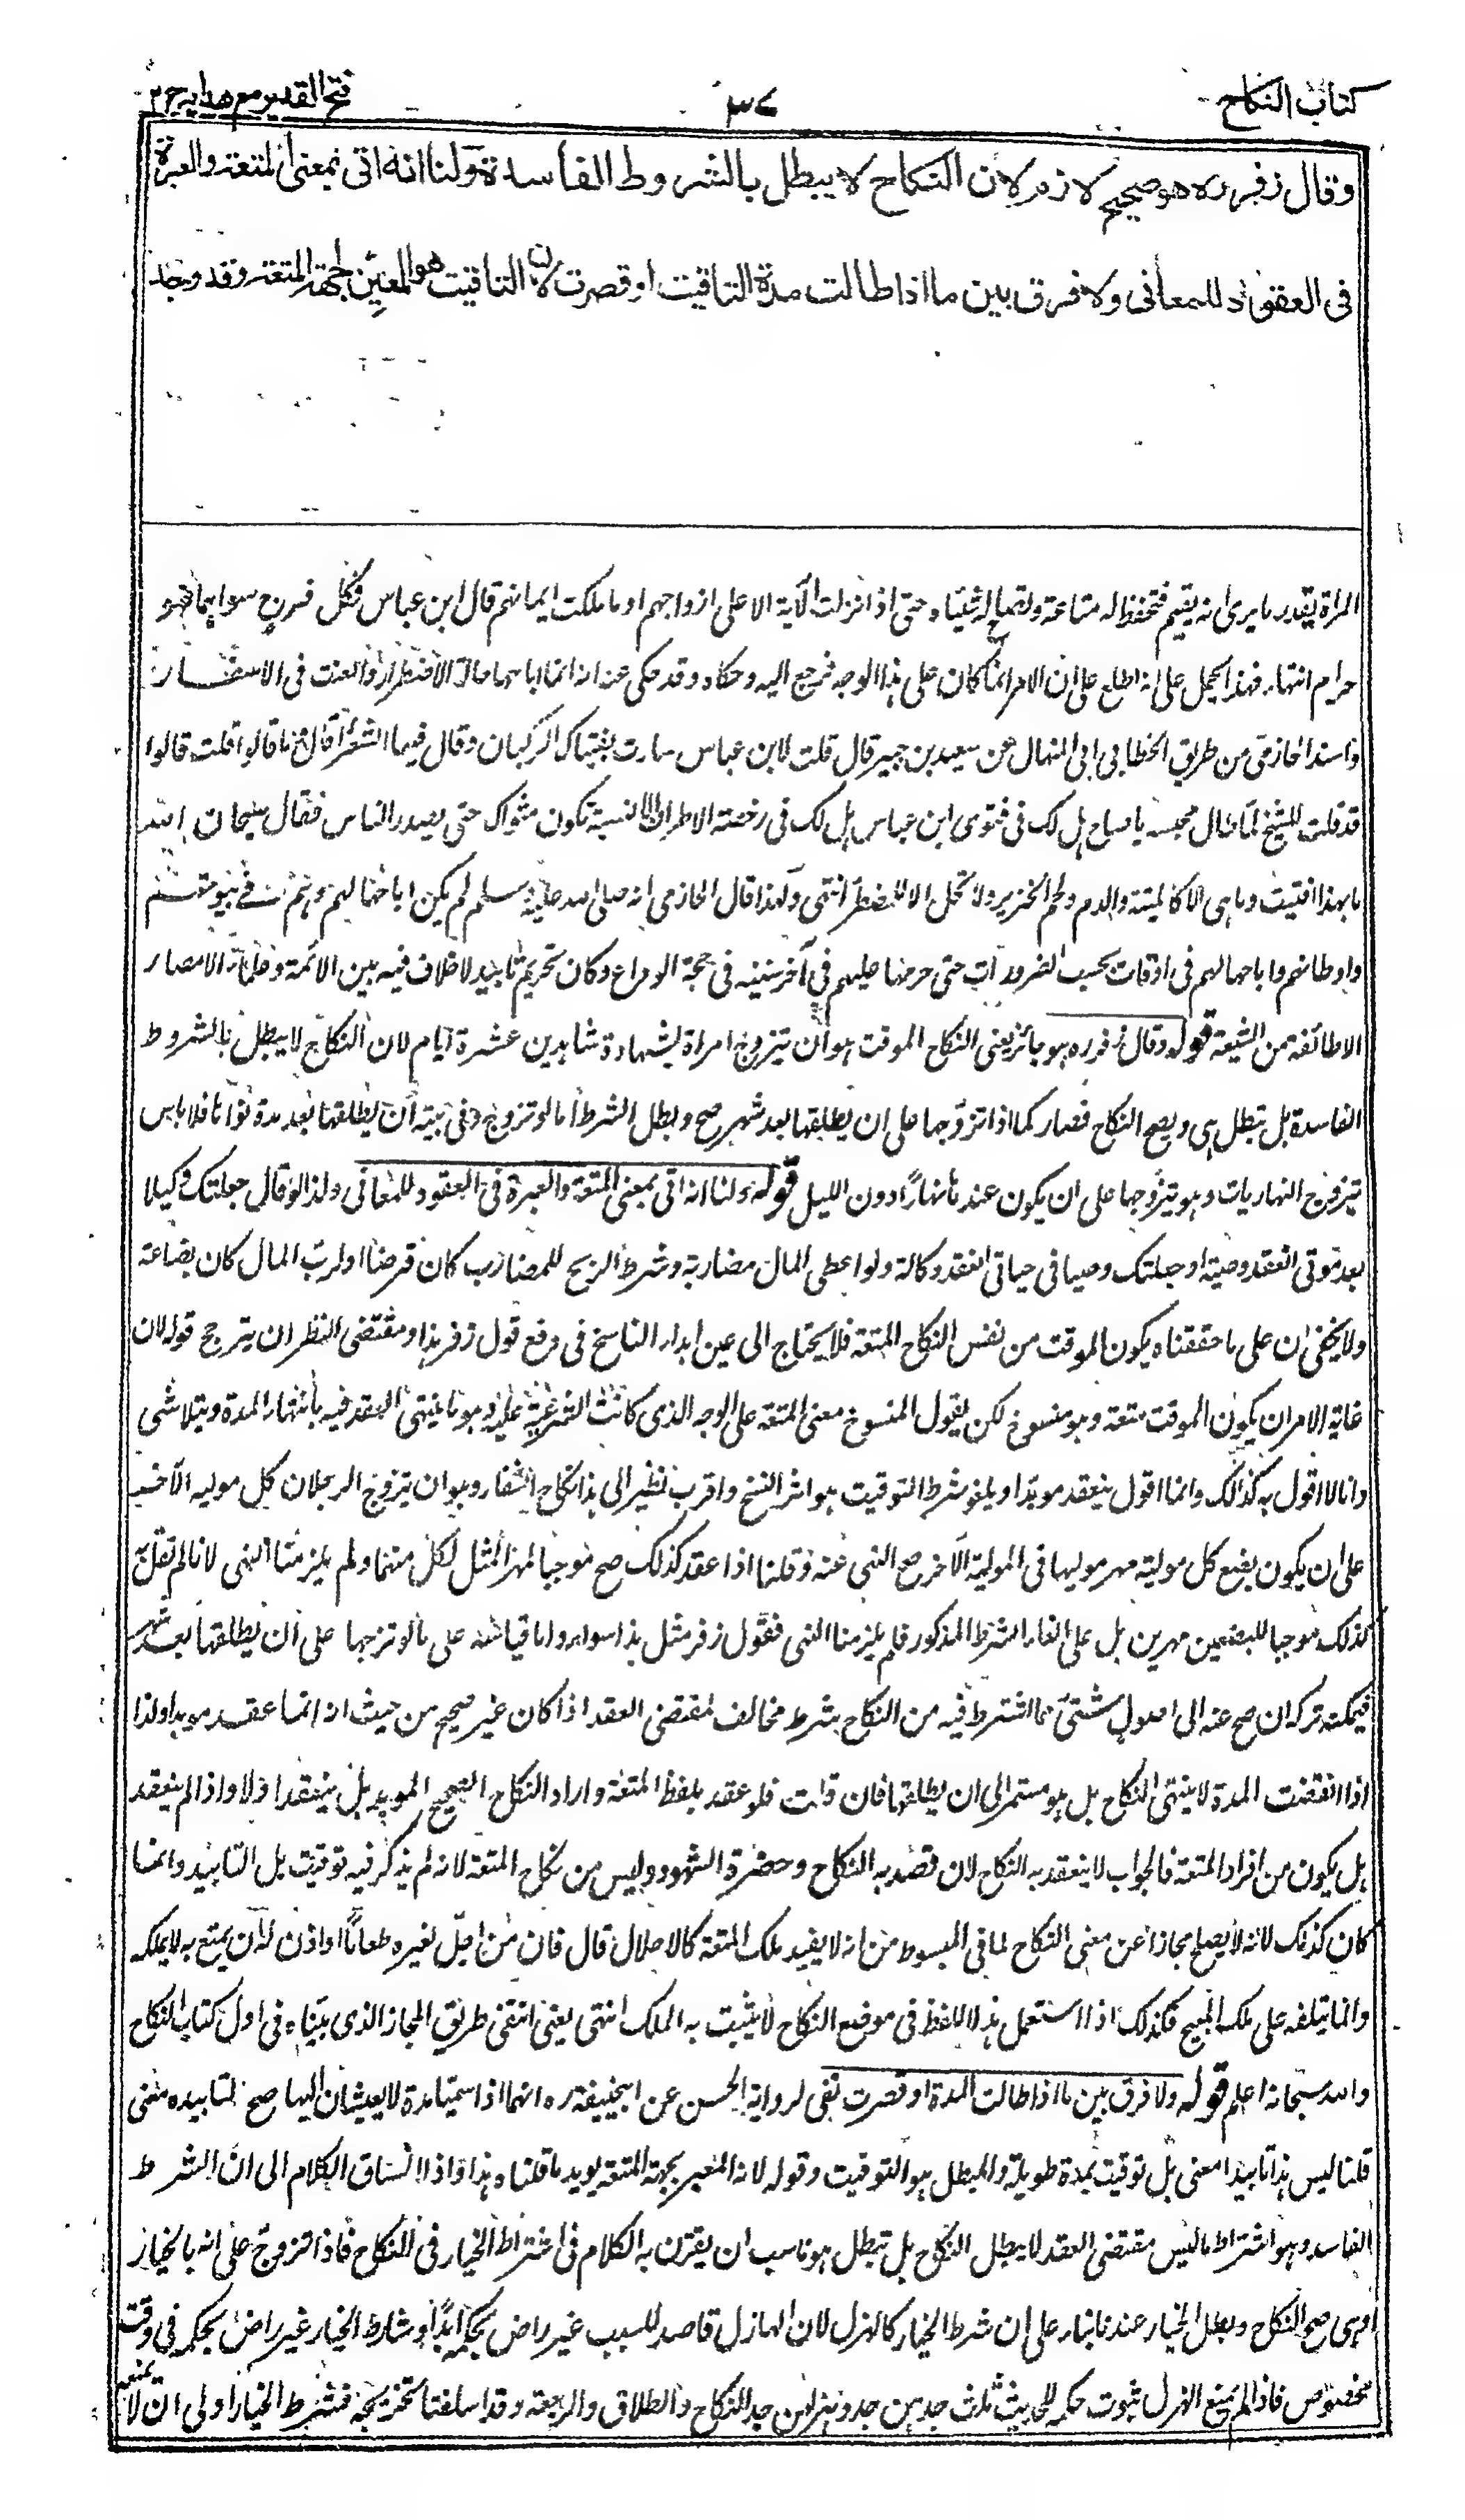 كتاب النكاح
٣٤
فتح القدير مع هدايه ج ٢
وقال زفر ره هو صحيح لازم لان النكاح لا يبطل بالشروط الفاسدة ولنا انه اتى بمعنى المتعة والعبرة
فى العقود للمعانى ولا فرق بين ما اذا طالت مدة التاقيت او قصرت لان التاقيت هو المعين لجهة المتعة وقد وجد
المرأة بقدر ما يرى انه يقيم فتحفظ له متاعه وتصلح له شيئاه حتى اذا نزلت الآية الا على ازواجهم او ما ملكت ايمانهم قال ابن عباس فكل فرج سواهما فهو
حرام انتهى فهذا يحمل على انه اطلع على ان الامر انما كان على هذا الوجه فرجع اليه وحكاه وقد حكى عنه انه انما اباحها حالة الاضطرار والعنت فى الاسفار
واسند الحازمى من طريق الخطابى الى المنهال عن سعيد بن جبير قال قلت لابن عباس سارت بفتياك الركبان وقال فيها الشعراء قال وما قالوا قلت قالوا
قد قلت للشيخ لما طال محبسه يا صاح هل لك فى فتوى ابن عباس هل لك فى رخصة الاطراف آنسة تكون مثواك حتى يصدر الناس فقال سبحان الله
ما بهذا افتيت وما هى الا كالميتة والدم ولحم الخنزير ولا تحل الا للمضطر انتهى ولهذا قال الحازمى انه صلى الله عليه وسلم لم يكن اباحها لهم وهم فى بيوتهم
واوطانهم وانما اباحها لهم فى اوقات بحسب الضرورات حتى حرمها عليهم فى آخر سنيه فى حجة الوداع وكان تحريم تابيد لا خلاف فيه بين الائمة وعلماء الامصار
الا طائفة من الشيعة قوله وقال زفر ره هو جائز يعنى النكاح الموقت هو ان يتزوج امرأة بشهادة شاهدين عشرة ايام لان النكاح لا يبطل بالشروط
الفاسدة بل تبطل هى ويصح النكاح فصار كما اذا تزوجها على ان يطلقها بعد شهر صح وبطل الشرط اما لو تزوج وفى نيته ان يطلقها بعد مدة نواها فلا باس
بتزوج النهاريات وهو يتزوجها على ان يكون عندها نهارا دون الليل قوله ولنا انه اتى بمعنى المتعة والعبرة فى العقود للمعانى ولذا لو قال جعلتك وكيلا
بعد موتى انعقد وصية او جعلتك وصيا فى حياتى انعقد وكالة ولو اعطى المال مضاربة وشرط الربح للمضارب كان قرضا او لرب المال كان بضاعة
ولا يخفى ان على ما حققناه يكون الموقت من نفس النكاح المتعة فلا يحتاج الى عين ابداء الناسخ فى دفع قول زفر هذا ومقتضى النظر ان يترجح قوله لان
غاية الامر ان يكون الموقت متعة وهو منسوخ لكن يقول المنسوخ معنى المتعة على الوجه الذى كانت الشرعية عليه وهو ما ينتهى العقد فيه بانتهاء المدة ويتلاشى
وانا لا اقول به كذلك وانما اقول ينعقد مؤبدا ويلغو شرط التوقيت هو اثر النسخ واقرب نظير الى هذا نكاح الشغار وهو ان يتزوج الرجلان كل موليه الآخر
على ان يكون بضع كل مولية مهر موليها فى المولية الآخر صح النهى عنه وقلنا اذا عقد كذلك صح موجبا لمهر المثل لكل منهما ولم يلزمنا النهى لانا لم نقل به
كذلك موجبا للبضعين مهرين بل على الغاء الشرط المذكور فلم يلزمنا النهى فقول زفر مثل هذا سواء واما قياسه على ما لو تزوجها على ان يطلقها بعد شهر
فيمكنه تركه ان صح عنه الى اصول شتى مما اشترط فيه من النكاح بشرط مخالف لمقتضى العقد اذا كان غير صحيح من حيث انه انما عقد مؤبدا ولذا
اذا انقضت المدة لا ينتهى النكاح بل هو مستمر الى ان يطلقها فان قلت فلو عقد بلفظ المتعة واراد النكاح الصحيح المؤبد هل ينعقد اولا واذا لم ينعقد
هل يكون من افراد المتعة فالجواب لا ينعقد به النكاح لان قصد به النكاح وحضرة الشهود وليس من نكاح المتعة لانه لم يذكر فيه توقيت بل التابيد وانما
كان كذلك لانه لا يصلح مجازا عن معنى النكاح لما فى المبسوط من انه لا يفيد ملك المتعة كالاحلال قال فان من احل لغيره طعاما او اذن له ان يمتع به لا يملكه
وانما يتلفه على ملك المبيح فكذلك اذا استعمل هذا اللفظ فى موضع النكاح لا يثبت به الملك انتهى يعنى انتفى طريق المجاز الذى بيناه فى اول كتاب النكاح
والله سبحانه اعلم قوله ولا فرق بين ما اذا طالت المدة او قصرت نفى لرواية الحسن عن ابيحنيفة ره انهما اذا سميا مدة لا يعيشان اليها صح لتابيده معنى
قلنا ليس هذا تابيدا معنى بل توقيت بمدة طويلة والمبطل هو التوقيت وقوله لانه المعين لجهة المتعة يؤيد ما قلناه هذا واذا انساق الكلام الى ان الشرط
الفاسد وهو اشتراط ما ليس مقتضى العقد لا يبطل النكاح بل تبطل هو ناسب ان يقترن به الكلام فى اشتراط الخيار فى النكاح فاذا تزوج على انه بالخيار
او هى صح النكاح وبطل الخيار عندنا بناء على ان شرط الخيار كالهزل لان الهازل قاصد للسبب غير راض بحكمه ابدا وشارط الخيار غير راض بحكمه فى وقت
مخصوص فاذا لم يمنع الهزل ثبوت حكمه للحديث ثلاث جدهن جد وهزلهن جد النكاح والطلاق والرجعة وقد اسلفنا تخريجه فشرط الخيار اولى ان لا يمنعه